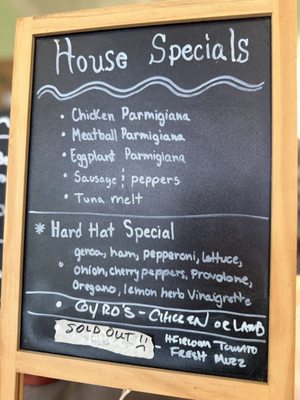 House Specials
• Chicken Parmigiana
• Meatball Parmigiana
• Eggplant Parmigiana
• Sausage & peppers
• Tuna melt
* Hard Hat Special
genoa, ham, pepperoni, lettuce,
onion, cherry peppers, Provolone,
Oregano, lemon herb Vinaigrette
• GYRO'S - CHICKEN OR LAMB
SOLD OUT!! - HEIRLOOM TOMATO
FRESH MUZZ